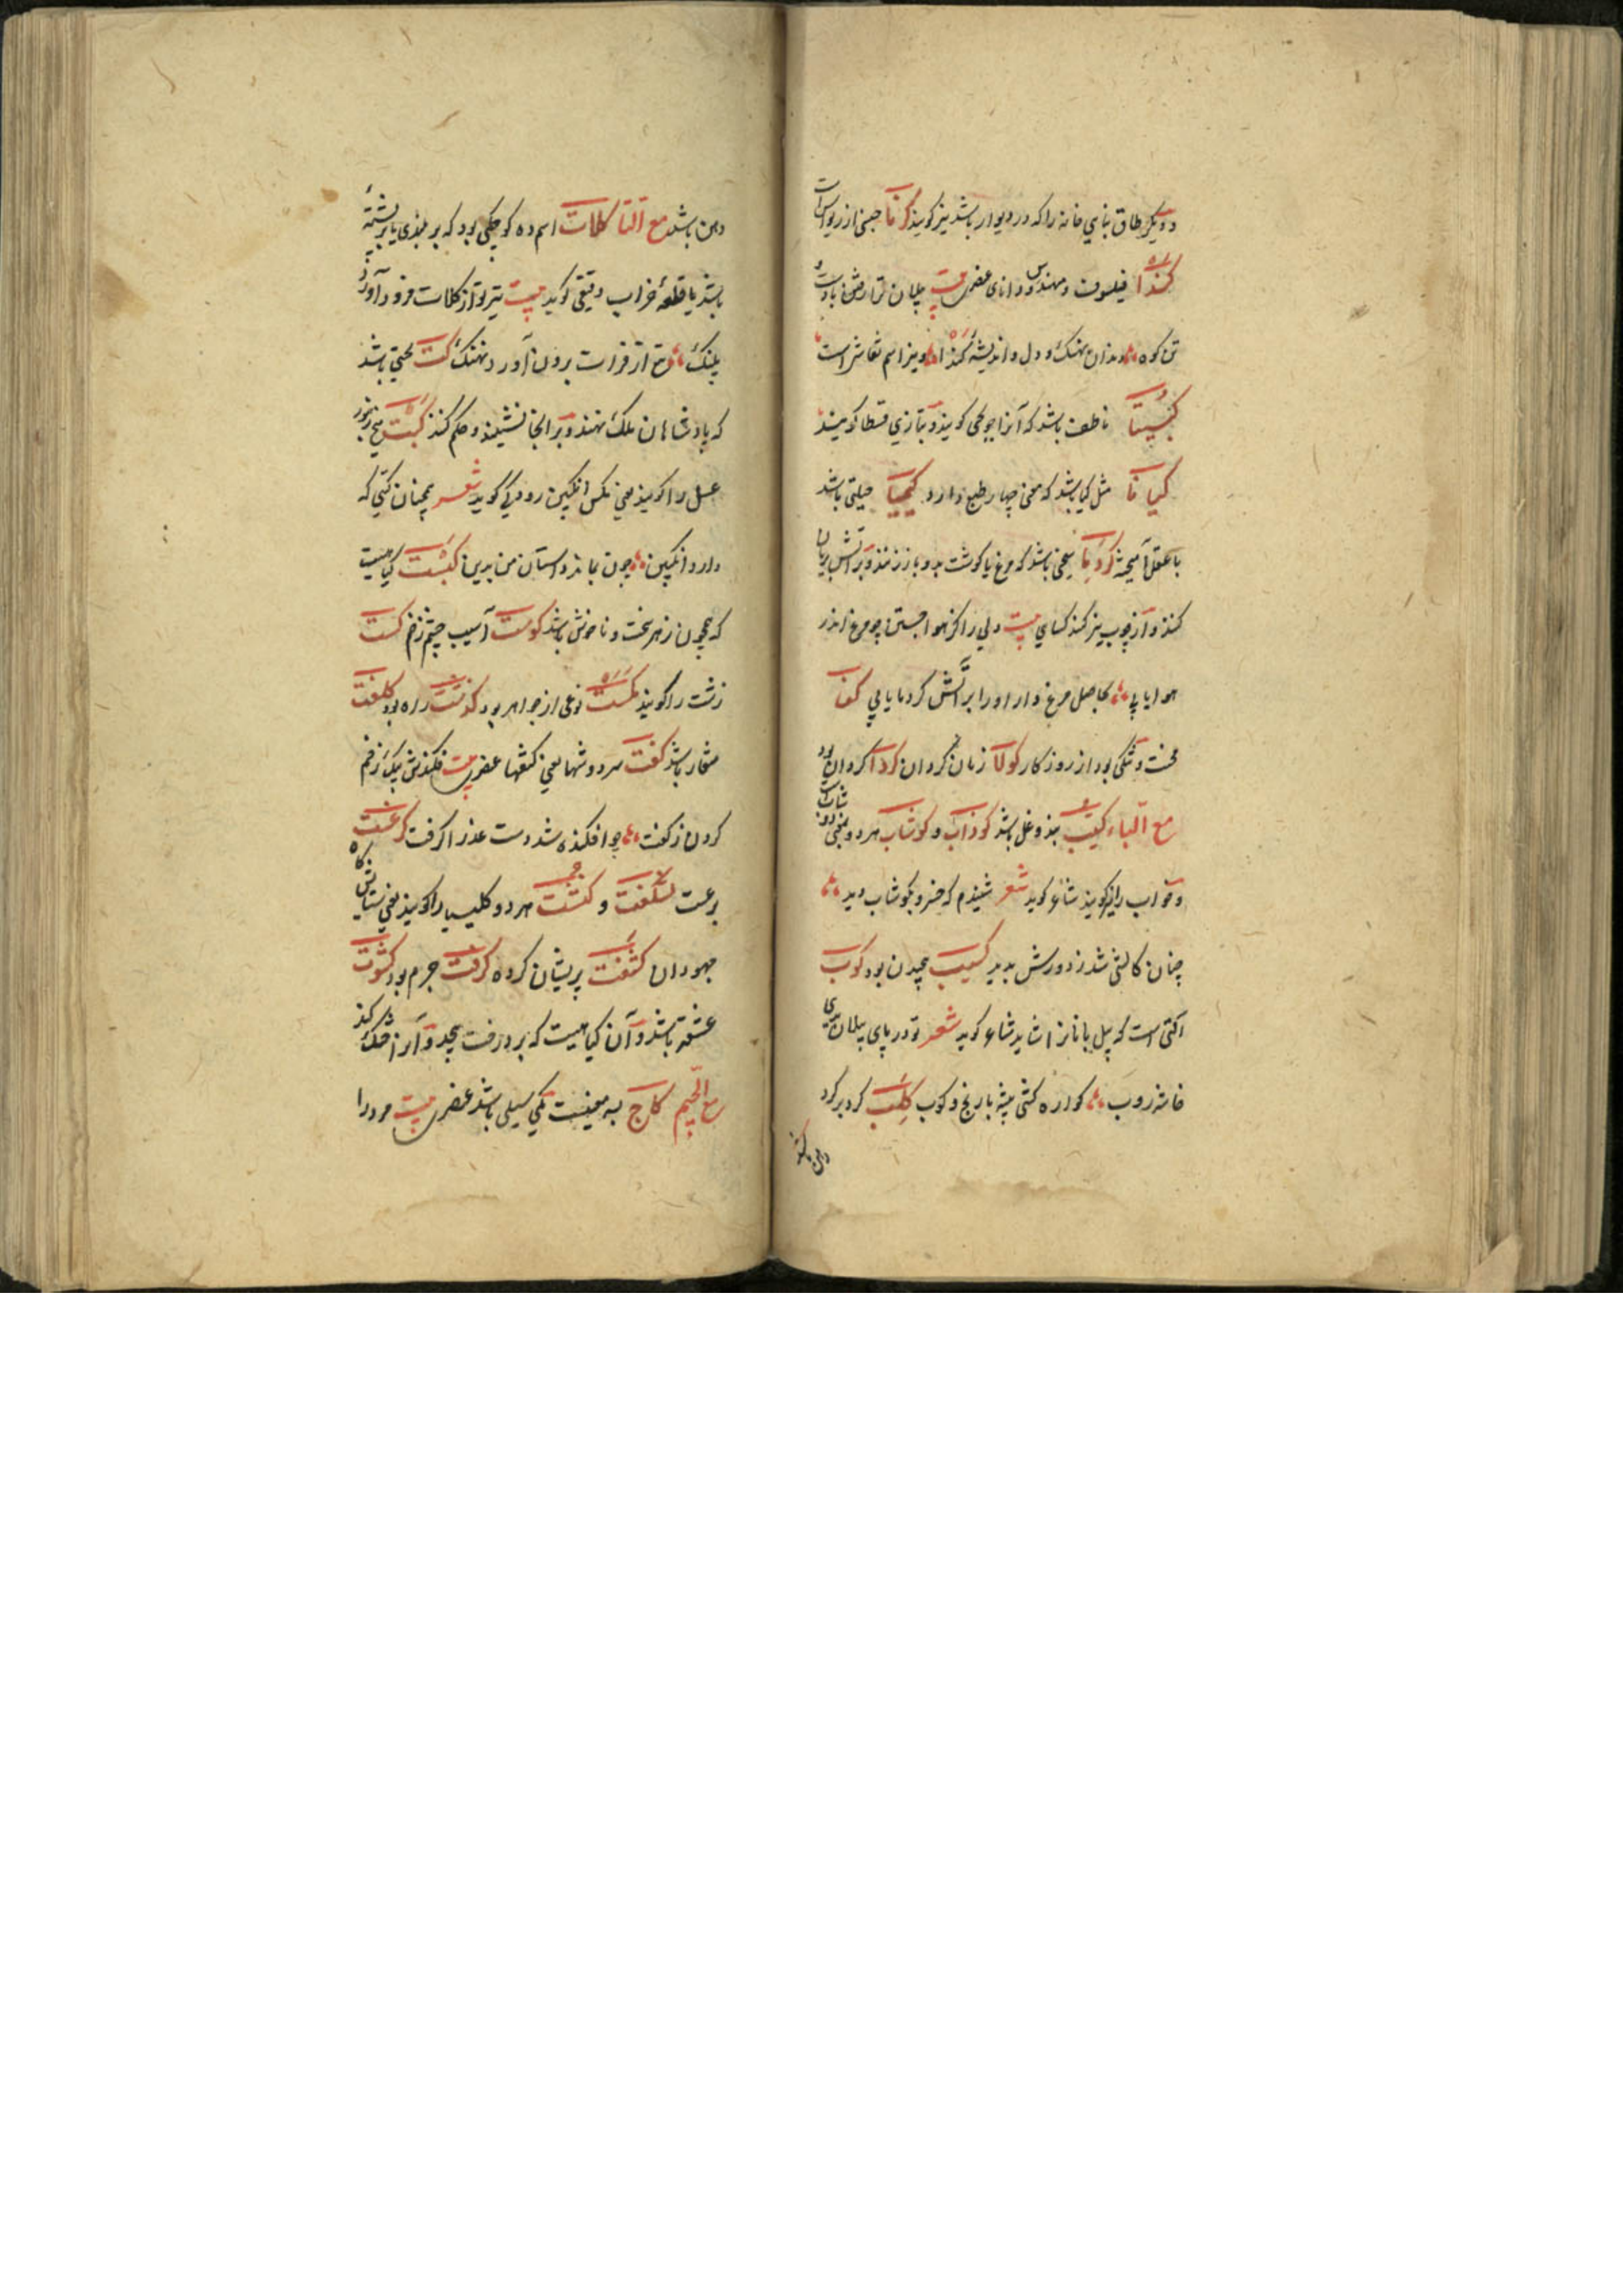 و دیکر طاق بنای خانه را که در دیوار باشد نیز کویند کرنا جنس از ریواس است
کندا فیلسوف و مهندس و دانای عنصری بیت پیلان ترا رفتن بادست و
تن کوه دندان نهنک و دل و اندیشه کندا و نیز اسم نقاش است
کبیتا ناطف باشد که آنرا جوعی کویند و بتازی قسطا کویند
کیانا مثل کیا باشد که معنی چهار طبع دارد کیمیا حیلتی باشد
با عقل آمیخته کردنا سیخی باشد که مرغ یا کوشت بدو باز زنند و بر آتش بریان
کنند و از چوب نیز کنند کسایی بیت دلی را کز هوا جستن چو مرغ اندر
هوا یابی بحاصل مرغ وار او را بر آتش کردنا یابی کفا
محنت و تنکی بود از روزکار کولا زمان کردان کردا کردان بود
مع الباء کیب بند و غل باشد کوداب و کوشاب هر دو بمعنی دوشاب است
و خواب را نیز کویند شاعر کوید شعر شنیدم که خسرو بکوشاب دید
چنان کاتشی شد ز دورش بدید کسیب پیچیدن بود کوب
آلتی است که پیل بانان را شاید شاعر کوید شعر تو در پای پیلان بدی
خاشه روب کواره کشی پیشه با رنج و کوب کلب کرد بر کرد
دهن باشد
دهن باشد مع التا کلات اسم ده کوچکی بود که بر بلندی یا بر پشته
باشد یا قلعه خراب دقیقی کوید بیت تیر تو از کلات فرود آورد
پلنک تیغ تو از فرات برون آورد نهنک کت تختی باشد
که پادشاهان ملک نهند و بر آنجا نشینند و حکم کنند کبت منج زنبور
عسل را کویند یعنی مکس انکبین رودکی کوید شعر همچنان کبتی که
دارد انکبین چون بماند داستان من بدین کبست کیاهیست
که همچون زهر سخت و ناخوش باشد کوست آسیب چشم زخم کست
زشت را کویند کمست نوعی از جواهر بود کذشت راه بود کلفت
منقار باشد کفت سر دوشها یعنی کتفها عنصری بیت فکندش بیک زخم
کردن ز کفت چو افکنده شد دست عذرا کرفت کرعست
برغست لسکفت و کنشت هر دو کلیسیا را کویند یعنی ستایش کاه
جهودان کشفت پریشان کرده کرفت جرم بود کشوت
عشقه باشد و آن کیاهیست که بر درخت پیچد و آنرا خشک کند
مع الجیم کاج به معنیست یکی سیلی باشد عنصری بیت مرد را